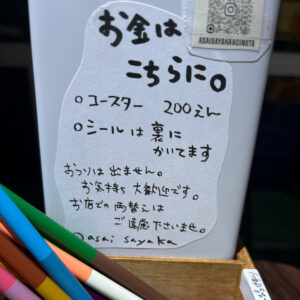 ASAISAYAHANDINSTA
お金は
こちらに。
○コースター 200えん
○シールは裏に
かいてます
おつりは出ません。
お気持ち大歓迎です。
お店での両替えは
ご遠慮下さいませ。
asai sayaka